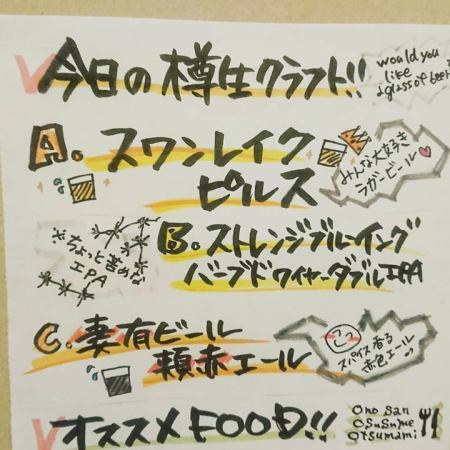 今日の樽生クラフト!!
would you
like
a glass of beer?
A. スワンレイク
ピルス
みんな大好き
ラガービール
B. ストレンジブルーイング
バーブドワイヤーダブルIPA
※ちょっと苦めな
IPA
C. 妻有ビール
頬赤エール
スパイス香る
赤色エール
オススメFOOD!!
Ono san
Osusume
Otsumami